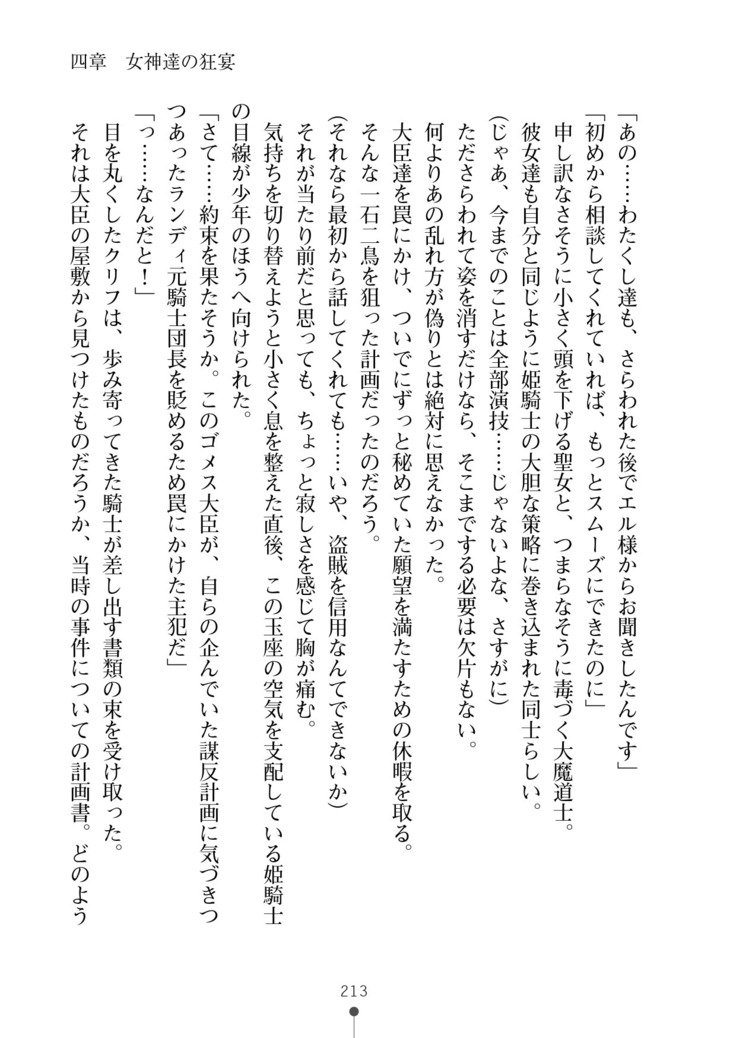 四章　女神達の狂宴
「あの……わたくし達も、さらわれた後でエル様からお聞きしたんです」
「初めから相談してくれていれば、もっとスムーズにできたのに」
申し訳なさそうに小さく頭を下げる聖女と、つまらなそうに毒づく大魔道士。
彼女達も自分と同じように姫騎士の大胆な策略に巻き込まれた同士らしい。
(じゃあ、今までのことは全部演技……じゃないよな、さすがに)
たださらわれて姿を消すだけなら、そこまでする必要は欠片もない。
何よりあの乱れ方が偽りとは絶対に思えなかった。
大臣達を罠にかけ、ついでにずっと秘めていた願望を満たすための休暇を取る。
そんな一石二鳥を狙った計画だったのだろう。
(それなら最初から話してくれても……いや、盗賊を信用なんてできないか)
それが当たり前だと思っても、ちょっと寂しさを感じて胸が痛む。
気持ちを切り替えようと小さく息を整えた直後、この玉座の空気を支配している姫騎士
の目線が少年のほうへ向けられた。
「さて……約束を果たそうか。このゴメス大臣が、自らの企んでいた謀反計画に気づきつ
つあったランディ元騎士団長を貶めるため罠にかけた主犯だ」
「っ……なんだと！」
目を丸くしたクリフは、歩み寄ってきた騎士が差し出す書類の束を受け取った。
それは大臣の屋敷から見つけたものだろうか、当時の事件についての計画書。どのよう
213